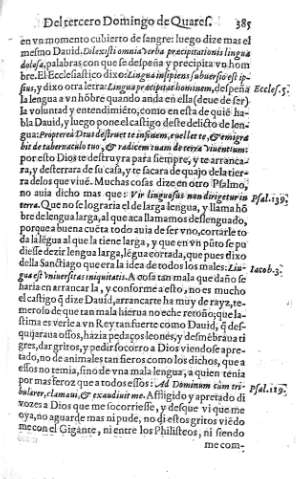 Del tercero Domingo de Quares. 385
en vn momento cubierto de sangre: luego dize mas el
mesmo Dauid. Dilexisti omnia verba præcipitationis lingua
dolosa, palabras con que se despeña y precipita vn hom
bre. El Ecclesiastico dixo: Lingua insipientis subuersio est ip-
sius, y dixo otra letra: Lingua præcipitat hominem, despeña Eccles. 5.
la lengua a vn hõbre quando anda en ella (deue de ser)
la voluntad y entendimiẽto, como en esta de quiẽ ha-
bla Dauid, y luego pone el castigo deste delicto de len-
gua: Propterea Deus destruet te in finem, euellet te, & emigra
bit de tabernaculo tuo, & radicem tuam de terra viuentium:
por esto Dios te destruyra para siempre, y te arranca-
ra, y desterrara de su casa, y te sacara de quajo dela tier
ra delos que viuẽ. Muchas cosas dize en otro Psalmo,
no auia dicho mas que: Vir linguosus non dirigetur in Psal. 139.
terra. Que no se lograria el de larga lengua, y llama hõ
bre de lengua larga, al que aca llamamos deslenguado,
porque a buena cuẽta todo auia de ser vno, cortarle to
da la lẽgua al que la tiene larga, y que en vn pũto se pu
diesse dezir lengua larga, lẽgua cortada, que pues dixo
della Sanctiago que era la idea de todos los males: Lin- Iacob. 3.
gua est vniuersitas iniquitatis. A cosa tan mala que daño se
haria en arrancar la, y conforme a esto, no es mucho
el castigo q̃ dize Dauid, arrancarte ha muy de rayz, te-
meroso de que tan mala hierua no eche retoño; que la-
stima es verle a vn Rey tan fuerte como Dauid, q̃ des-
quijaraua ossos, hazia pedaços leones, y desmẽbraua ti
gres, dar gritos, y pedir socorro a Dios viendose apre-
tado, no de animales tan fieros como los dichos, que a
essos no temia, sino de vna mala lengua, a quien tenia
por mas feroz que a todos essos: Ad Dominum cùm tri- Psal. 119.
bularer, clamaui, & exaudiuit me. Affligido y apretado di
vozes a Dios que me socorriesse, y desque vi que me
oya, no aguarde mas ni pude, no di estos gritos viẽdo
me con el Gigante, ni entre los Philisteos, ni siendo
me com-